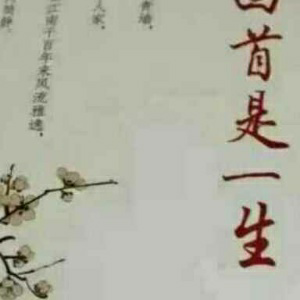 回首是一生
青墙，
人家。
江南千百年来风流雅逸，
静，